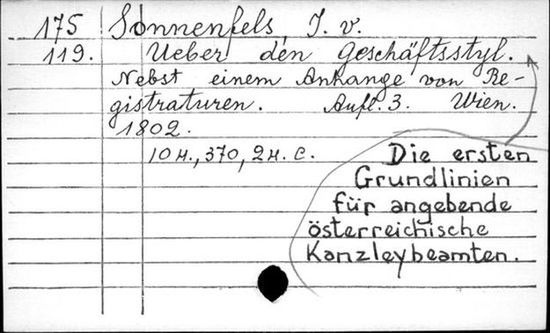 175 Sonnenfels, J. v.
119. Ueber den Geschäftsstyl.
Nebst einem Anhange von Re-
gistraturen. Aufl. 3. Wien.
1802.
10 н., 370, 2 н. с.
Die ersten
Grundlinien
für angebende
österreichische
Kanzleybeamten.